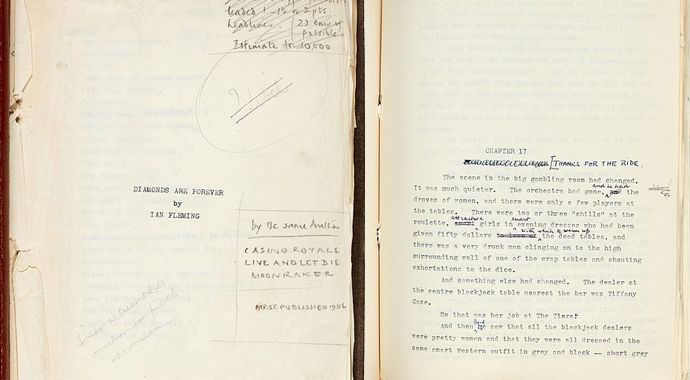 Headlines. 22 ems if
possible
Estimate for 10,000
DIAMONDS ARE FOREVER
by
IAN FLEMING
by the same Author
CASINO ROYALE
LIVE AND LET DIE
MOONRAKER
FIRST PUBLISHED 1956
CHAPTER 17
[THANKS FOR THE RIDE.
The scene in the big gambling room had changed.
It was much quieter. The orchestra had gone, and so had the
droves of women, and there were only a few players at
the tables. There were two or three "shills" at the
roulette, attractive girls in smart evening dresses who had been
given fifty dollars with which to warm up the dead tables, and
there was a very drunk man clinging on to the high
surrounding wall of one of the crap tables and shouting
exhortations to the dice.
And something else had changed. The dealer at
the centre blackjack table nearest the bar was Tiffany
Case.
So that was her job at The Tiara!
And then Bond saw that all the blackjack dealers
were pretty women and that they were all dressed in the
same smart western outfit in grey and black -- short grey